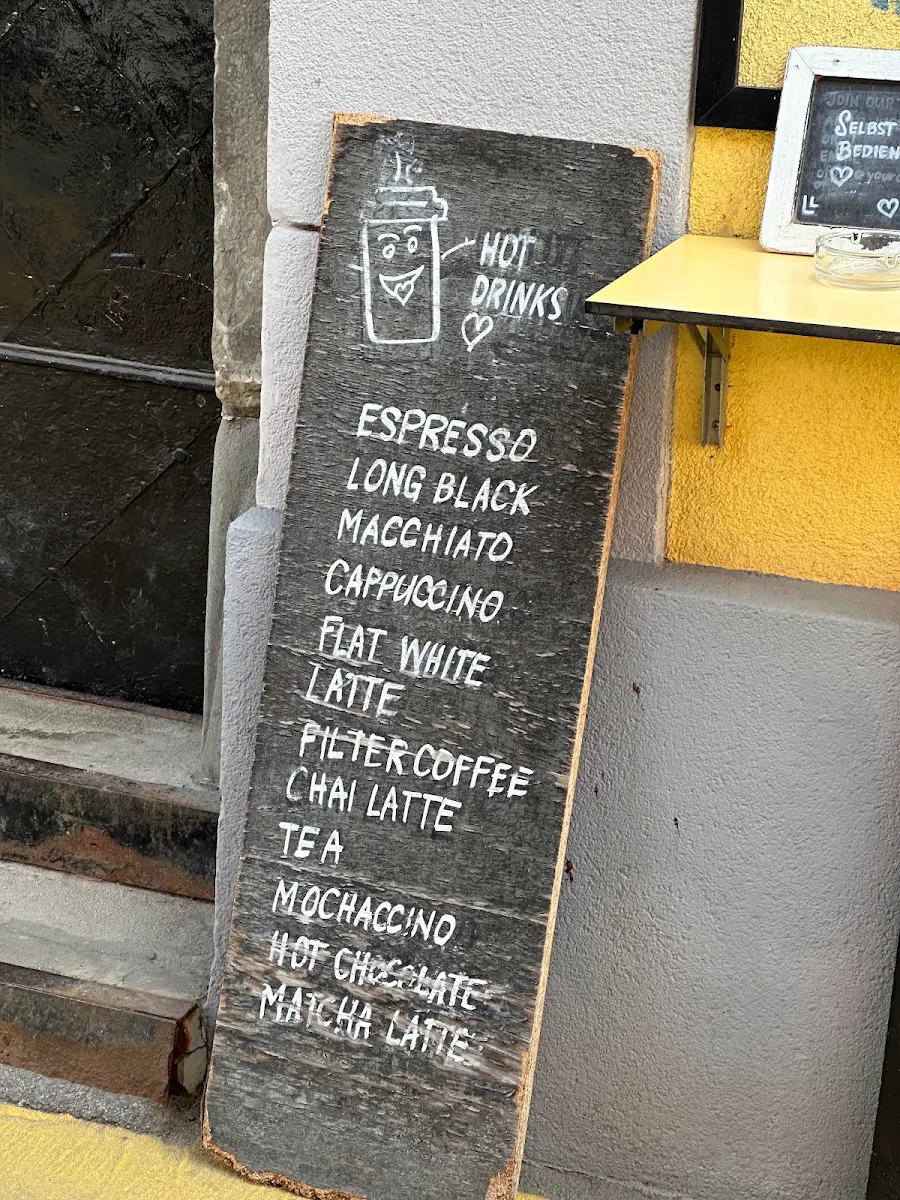 HOT
DRINKS
ESPRESSO
LONG BLACK
MACCHIATO
CAPPUCCINO
FLAT WHITE
LATTE
FILTER COFFEE
CHAI LATTE
TEA
MOCHACCINO
HOT CHOCOLATE
MATCHA LATTE
JOIN OUR
SELBST
BEDIEN
@ your